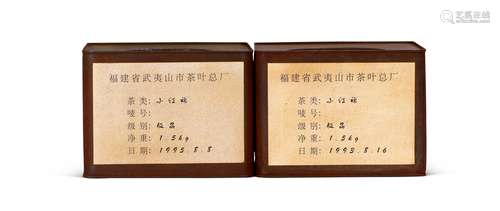 福建省武夷山市茶叶总厂
茶类: 小红袍
唛号:
级别: 极品
净重: 1.5kg
日期: 1993.8.8
福建省武夷山市茶叶总厂
茶类: 小红袍
唛号:
级别: 极品
净重: 1.5kg
日期: 1993.8.16